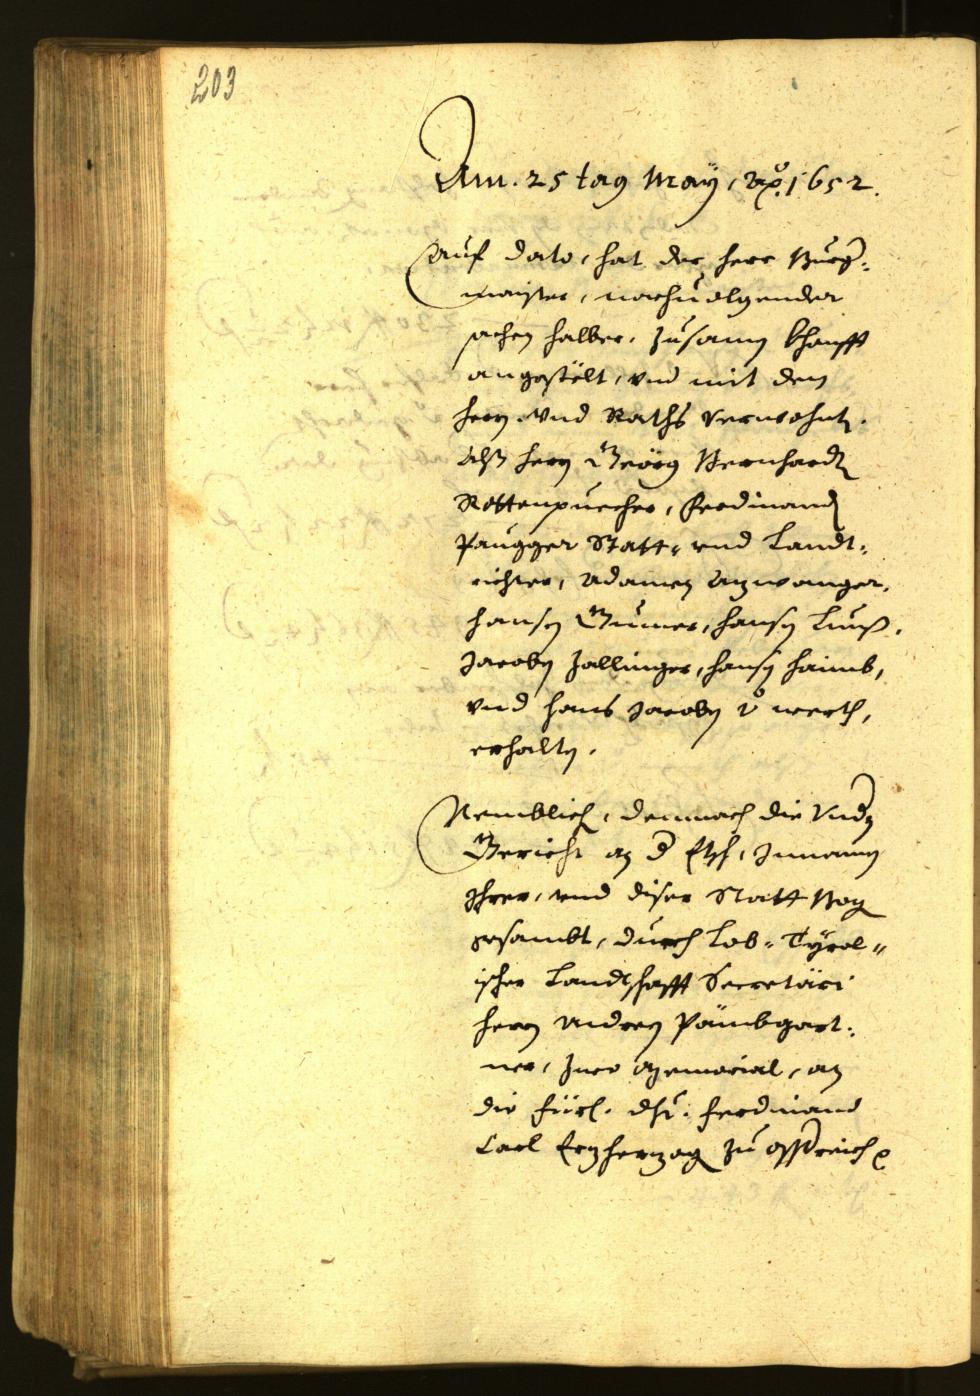 203
Am. 25 tag May, Ao. 1652.
Auf dato, hat der herr Burg-
maister, nachuolgender
sachen halber, zusamen khonfft
angestölt, vnd mit den
hern vnd Raths verwohnten.
Alß hern Geörg Bernhardt
Rottenpuecher, Ferdinand
Paugger Statt- vnd Landt-
richter, Adamen Anzwanger,
hansen Gumer, hansen Lutß,
Jacoben Zallinger, hansen haimb,
vnd hans Jacoben v werth,
erhalten.
Nemblich, demnach die Vnd
Gericht an d Etsch, Innamen
Ihrer, vnd diser Statt Bozen
gesambt, durch Lob- Tyrol-
ischer Landtschafft Secretäri
hern Andreen Pämbgart-
ner, zwo memorial, an
die fürl. dht. Ferdinand
Carl Erzherzog zu Össtreich